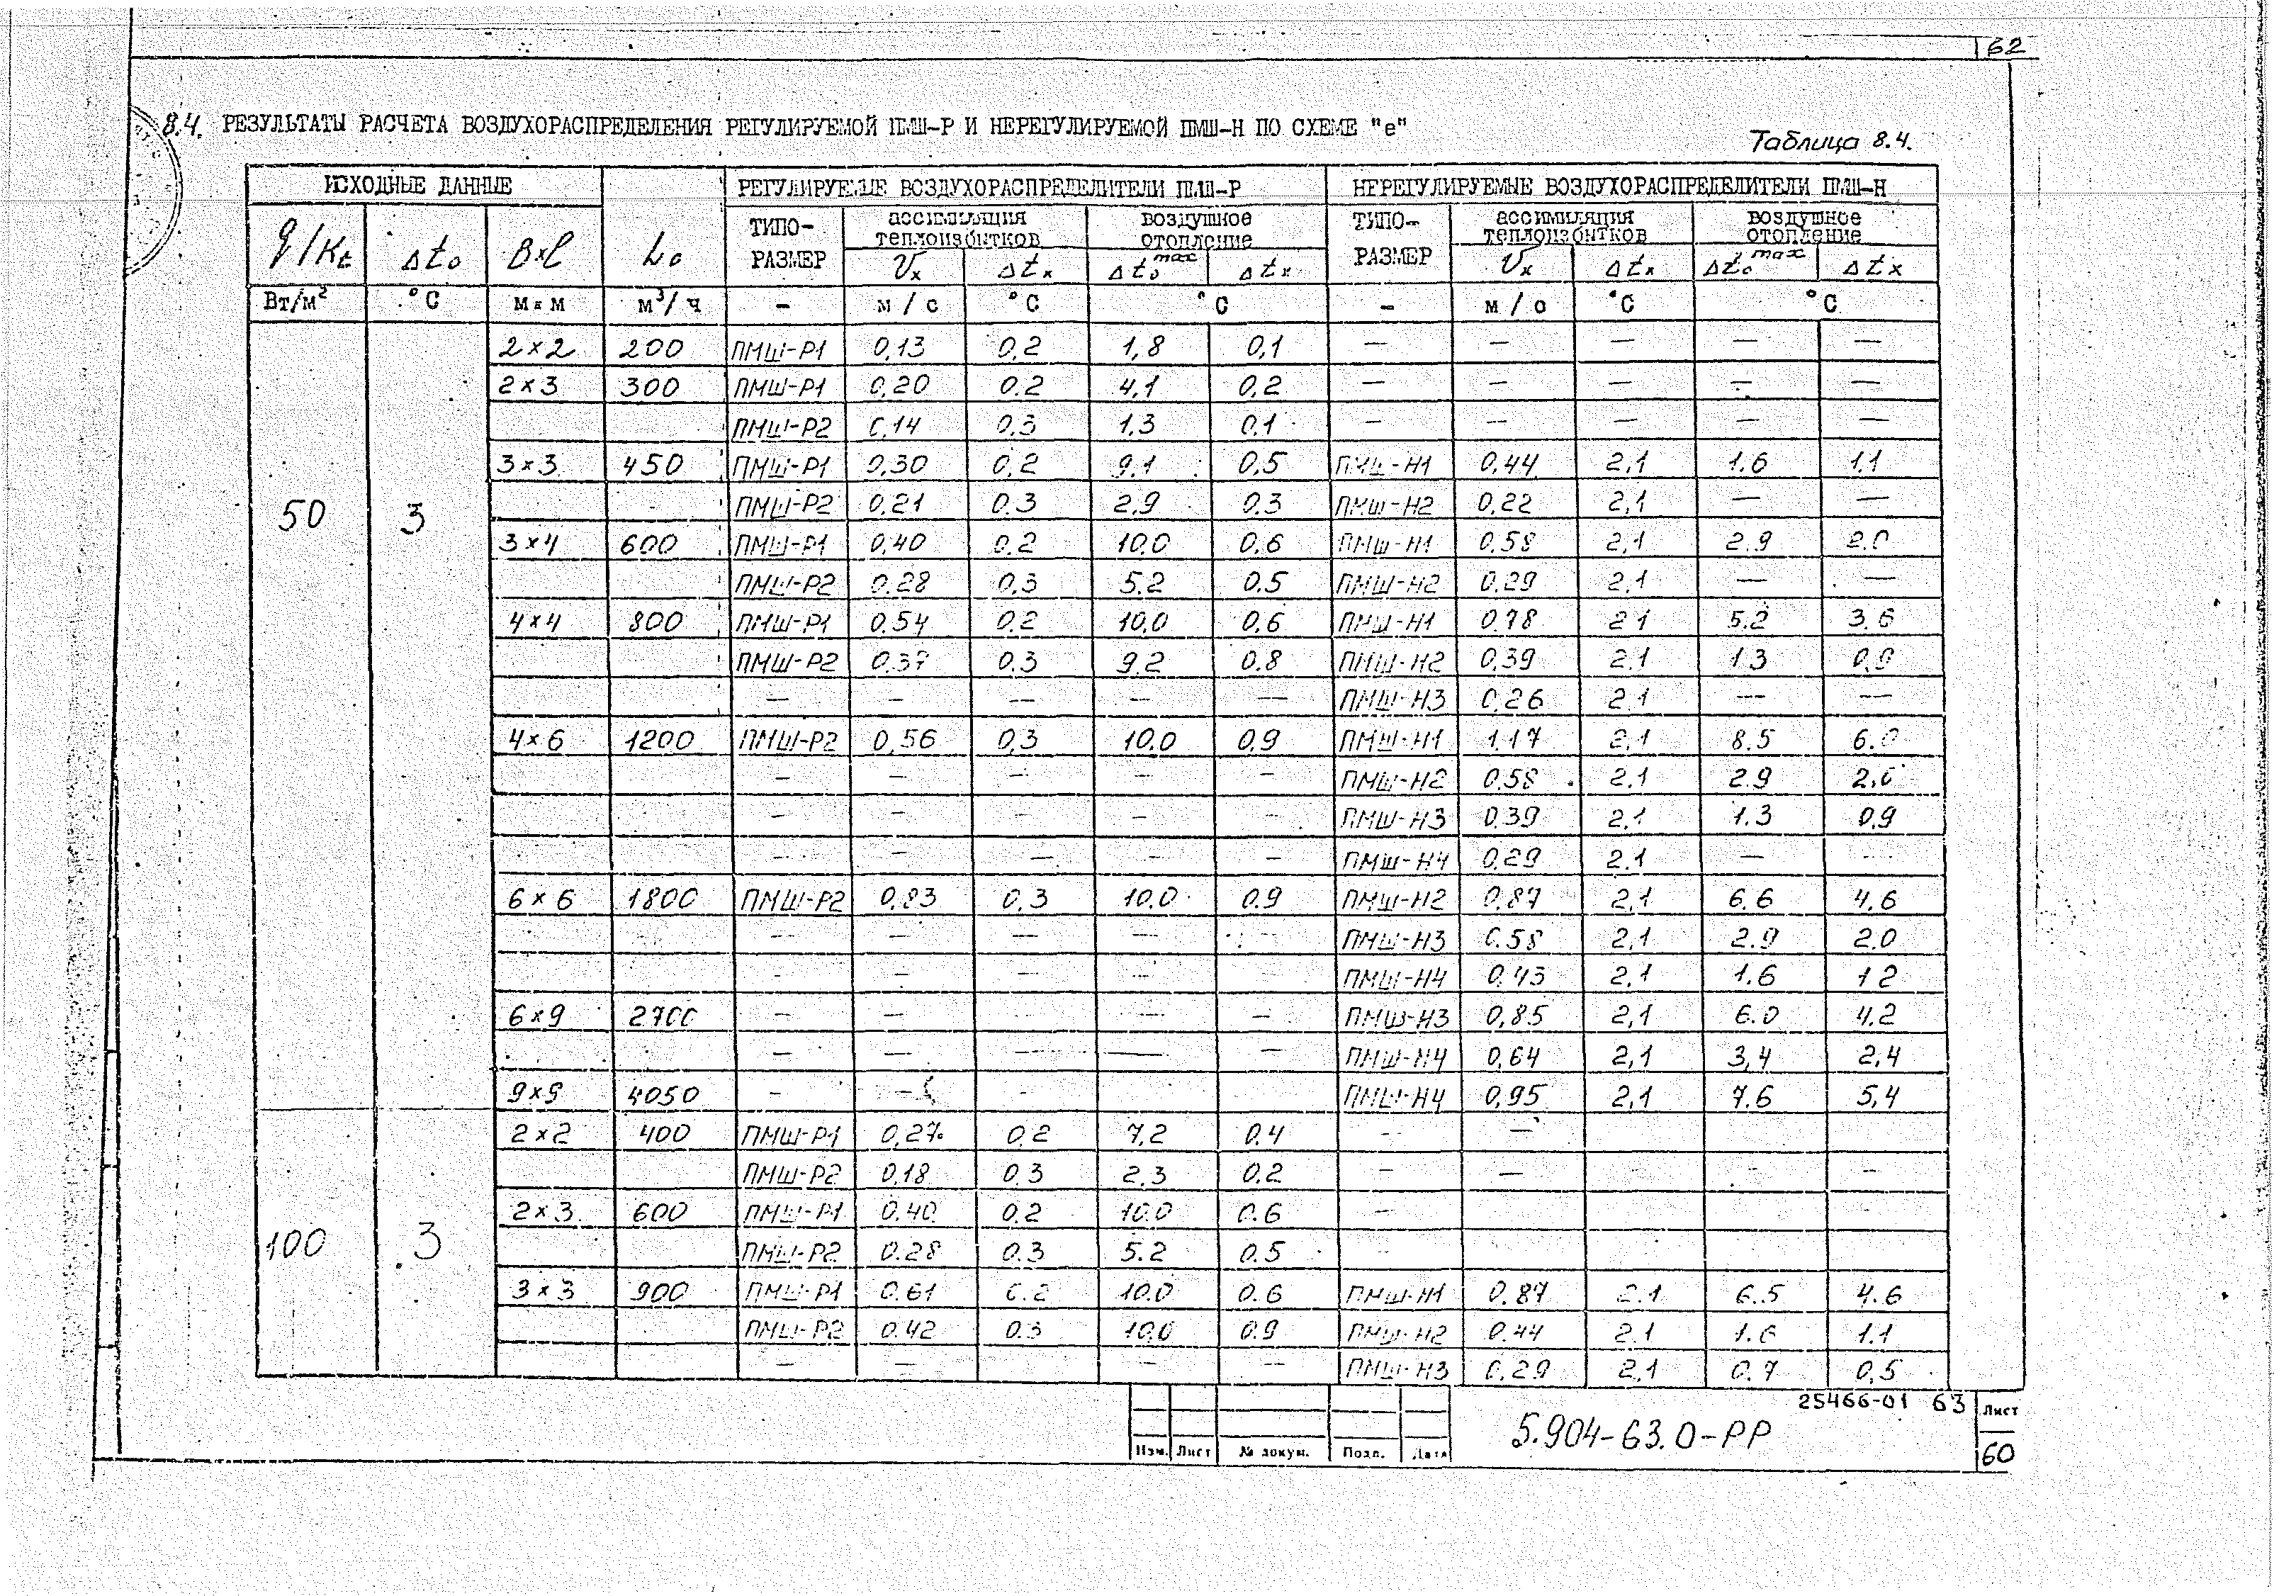 62
8.4. РЕЗУЛЬТАТЫ РАСЧЕТА ВОЗДУХОРАСПРЕДЕЛЕНИЯ РЕГУЛИРУЕМОЙ ПМШ-Р И НЕРЕГУЛИРУЕМОЙ ПМШ-Н ПО СХЕМЕ "е"
Таблица 8.4.
ИСХОДНЫЕ ДАННЫЕ РЕГУЛИРУЕМЫЕ ВОЗДУХОРАСПРЕДЕЛИТЕЛИ ПМШ-Р НЕРЕГУЛИРУЕМЫЕ ВОЗДУХОРАСПРЕДЕЛИТЕЛИ ПМШ-Н
q/Kt Δt₀ B×l L₀ ТИПО-РАЗМЕР ассимиляция теплоизбытков воздушное отопление ТИПО-РАЗМЕР ассимиляция теплоизбытков воздушное отопление
Vx Δtx Δt₀max Δtx Vx Δtx Δt₀max Δtx
Вт/м² °С м×м м³/ч – м/с °С °С – м/с °С °С
50 3
2×2 200 ПМШ-Р1 0,13 0,2 1,8 0,1 — — — — —
2×3 300 ПМШ-Р1 0,20 0.2 4,1 0,2 — — — — —
ПМШ-Р2 0,14 0,3 1.3 0.1 — — — — —
3×3 450 ПМШ-Р1 0,30 0,2 9.1 0,5 ПМШ-Н1 0,44 2,1 1.6 1.1
ПМШ-Р2 0,21 0.3 2.9 0.3 ПМШ-Н2 0,22 2,1 — —
3×4 600 ПМШ-Р1 0,40 0.2 10.0 0.6 ПМШ-Н1 0.58 2,1 2.9 2.0
ПМШ-Р2 0.28 0,3 5.2 0.5 ПМШ-Н2 0.29 2,1 — —
4×4 800 ПМШ-Р1 0.54 0.2 10,0 0,6 ПМШ-Н1 0.78 2.1 5.2 3.6
ПМШ-Р2 0.37 0.3 9.2 0.8 ПМШ-Н2 0,39 2.1 1.3 0,9
— — — — — ПМШ-Н3 0.26 2.1 — —
4×6 1200 ПМШ-Р2 0,56 0,3 10.0 0,9 ПМШ-Н1 1.17 2.1 8.5 6.0
— — — — — ПМШ-Н2 0.58 2.1 2.9 2.0
— — — — — ПМШ-Н3 0.39 2,1 1.3 0.9
— — — — — ПМШ-Н4 0.29 2.1 — —
6×6 1800 ПМШ-Р2 0,83 0,3 10.0 0.9 ПМШ-Н2 0.87 2,1 6.6 4.6
— — — — — ПМШ-Н3 0.58 2,1 2.9 2.0
— — — — — ПМШ-Н4 0.43 2,1 1.6 1.2
6×9 2700 — — — — — ПМШ-Н3 0,85 2,1 6.0 4.2
— — — — — ПМШ-Н4 0,64 2,1 3,4 2,4
9×9 4050 — — — ПМШ-Н4 0,95 2,1 7.6 5,4
100 3
2×2 400 ПМШ-Р1 0,27 0.2 7,2 0.4 — —
ПМШ-Р2 0,18 0.3 2.3 0.2 — — — — —
2×3 600 ПМШ-Р1 0.40 0.2 10.0 0.6 —
ПМШ-Р2 0.28 0.3 5.2 0.5 —
3×3 900 ПМШ-Р1 0.61 0.2 10.0 0.6 ПМШ-Н1 0.87 2.1 6.5 4.6
ПМШ-Р2 0.42 0.3 10.0 0.9 ПМШ-Н2 0.44 2.1 1.6 1.1
— — — — ПМШ-Н3 0.29 2,1 0.7 0,5
25466-01 63
Изм. Лист № докум. Подп. Дата
5.904-63.0-РР
Лист
60